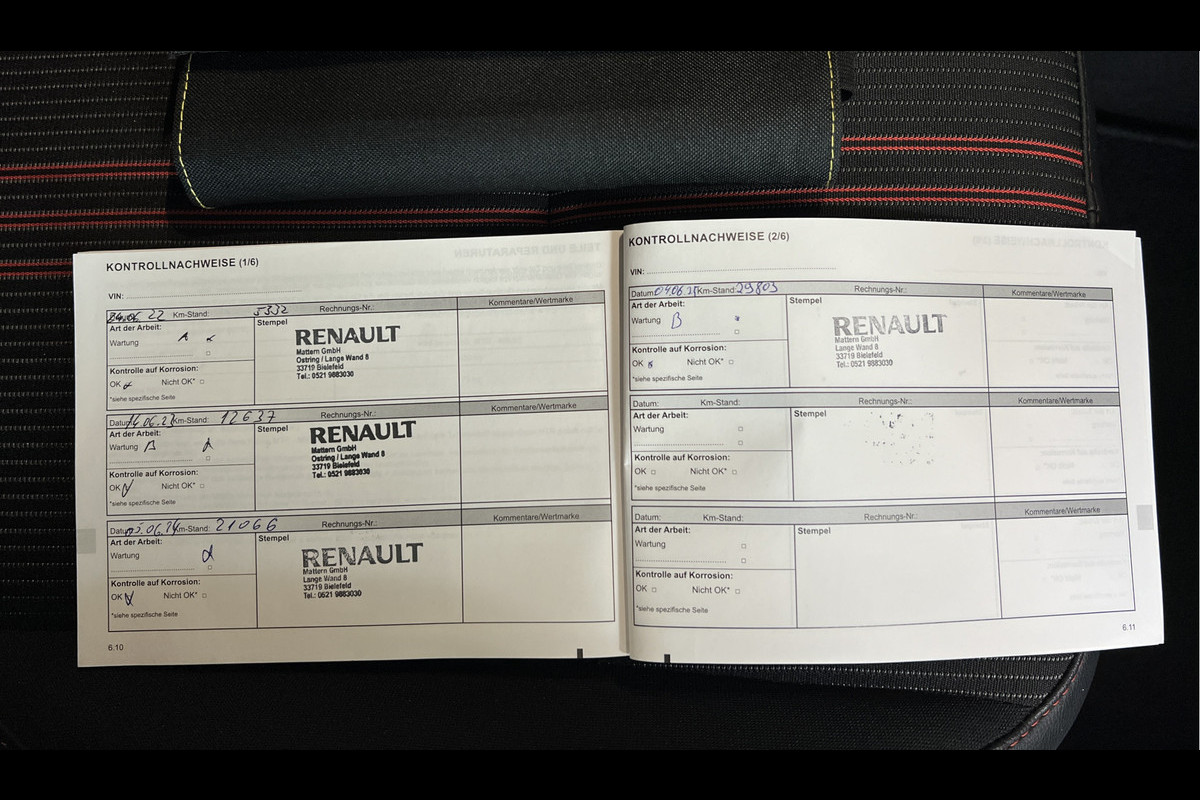 KONTROLLNACHWEISE (1/6)
VIN:
22 Km-Stand: 5332 Rechnungs-Nr.: Kommentare/Wertmarke
Art der Arbeit: Stempel
Wartung A
RENAULT
Mattern GmbH
Ostring / Lange Wand 8
33719 Bielefeld
Tel.: 0521 9883030
Kontrolle auf Korrosion:
OK Nicht OK*
*siehe spezifische Seite
Datum: 14.06.23 Km-Stand: 12637 Rechnungs-Nr.: Kommentare/Wertmarke
Art der Arbeit: Stempel
Wartung B
RENAULT
Mattern GmbH
Ostring / Lange Wand 8
33719 Bielefeld
Tel.: 0521 9883030
Kontrolle auf Korrosion:
OK Nicht OK*
*siehe spezifische Seite
Datum: 05.06.24 Km-Stand: 21066 Rechnungs-Nr.: Kommentare/Wertmarke
Art der Arbeit: Stempel
Wartung
RENAULT
Mattern GmbH
Lange Wand 8
33719 Bielefeld
Tel.: 0521 9883030
Kontrolle auf Korrosion:
OK Nicht OK*
*siehe spezifische Seite
6.10
KONTROLLNACHWEISE (2/6)
VIN:
Datum: 04.06.25 Km-Stand: 29803 Rechnungs-Nr.: Kommentare/Wertmarke
Art der Arbeit: Stempel
Wartung B
RENAULT
Mattern GmbH
Lange Wand 8
33719 Bielefeld
Tel.: 0521 9883030
Kontrolle auf Korrosion:
OK Nicht OK*
*siehe spezifische Seite
Datum: Km-Stand: Rechnungs-Nr.: Kommentare/Wertmarke
Art der Arbeit: Stempel
Wartung
Kontrolle auf Korrosion:
OK Nicht OK*
*siehe spezifische Seite
Datum: Km-Stand: Rechnungs-Nr.: Kommentare/Wertmarke
Art der Arbeit: Stempel
Wartung
Kontrolle auf Korrosion:
OK Nicht OK*
*siehe spezifische Seite
6.11